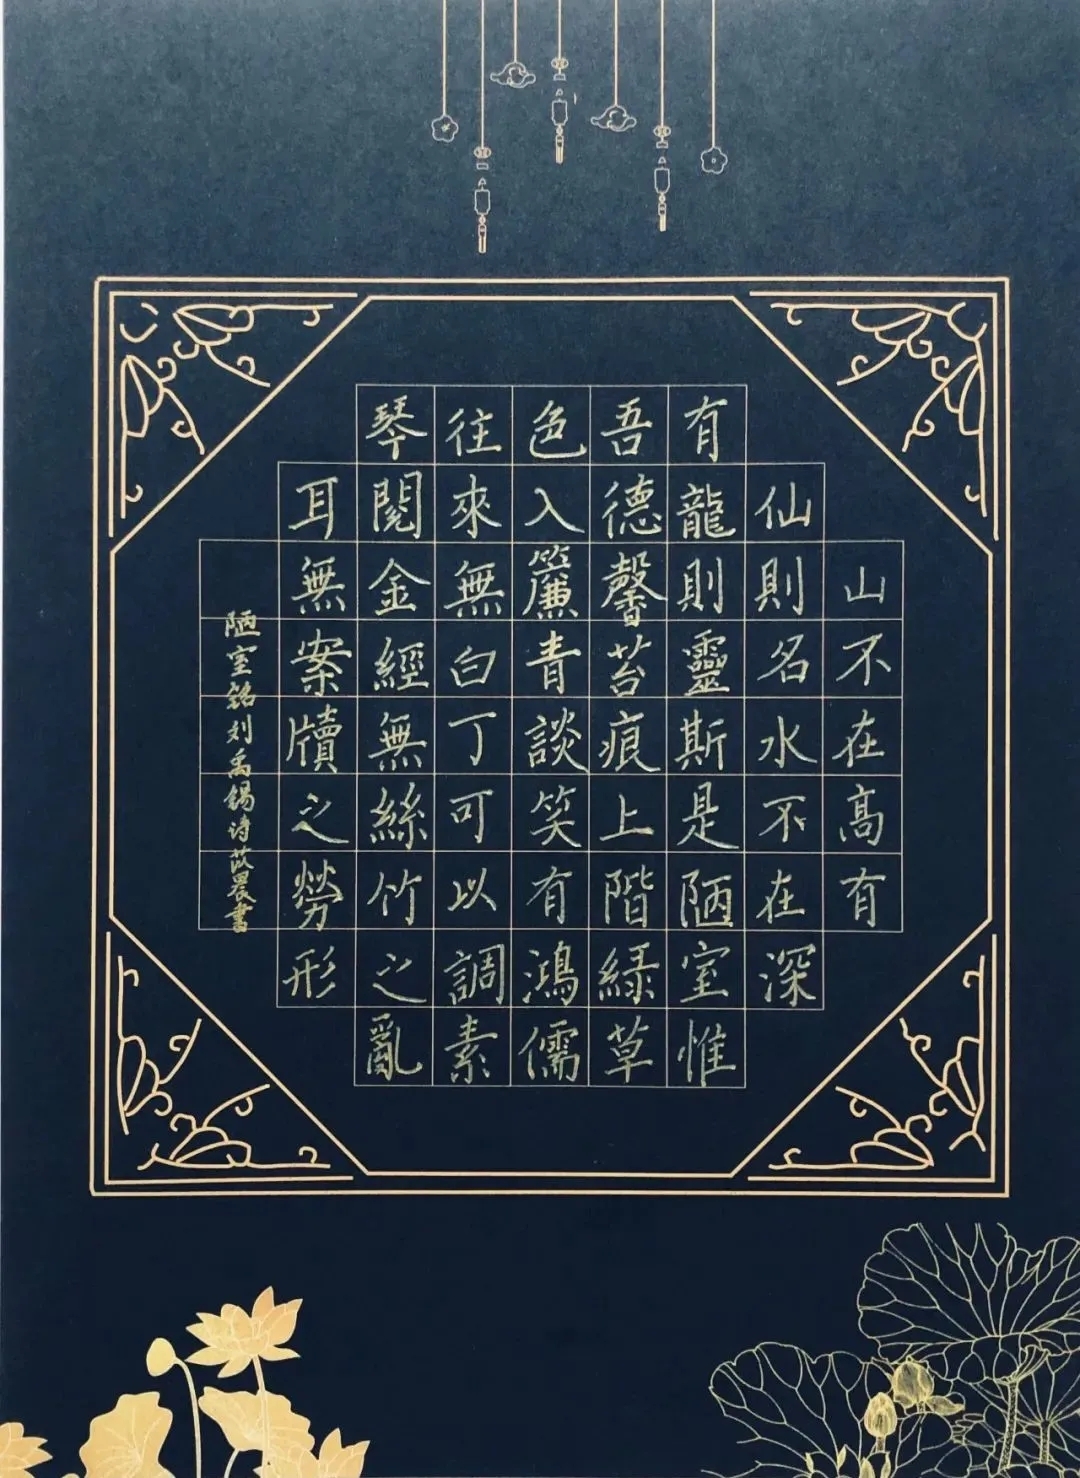 山不在高有
仙則名水不在深
有龍則靈斯是陋室惟
吾德馨苔痕上階綠草
色入簾青談笑有鴻儒
往來無白丁可以調素
琴閱金經無絲竹之亂
耳無案牘之勞形
陋室銘刘禹錫诗書